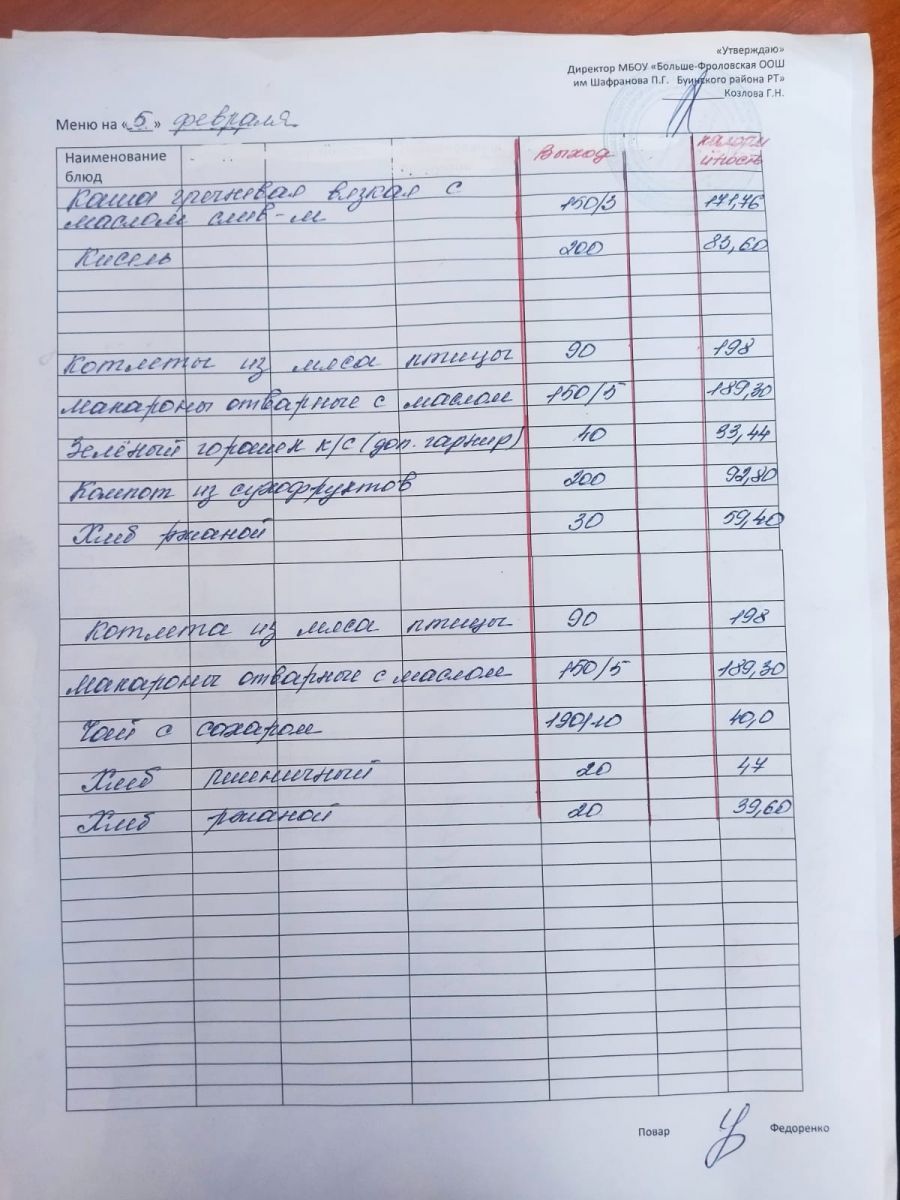 «Утверждаю»
Директор МБОУ «Больше-Фроловская ООШ
им Шафранова П.Г. Буинского района РТ»
Козлова Г.Н.
Меню на «5» февраля
Наименование блюд Выход калорийность
Каша гречневая вязкая с
маслом слив-м 150/3 171,76
Кисель 200 83,60
Котлеты из мяса птицы 90 198
Макароны отварные с маслом 150/5 189,30
Зелёный горошек к/с (доп. гарнир) 40 93,44
Компот из сухофруктов 200 92,80
Хлеб ржаной 30 59,40
Котлета из мяса птицы 90 198
Макароны отварные с маслом 150/5 189,30
Чай с сохаром 190/10 40,0
Хлеб пшеничный 20 47
Хлеб ржаной 20 39,60
Повар Федоренко